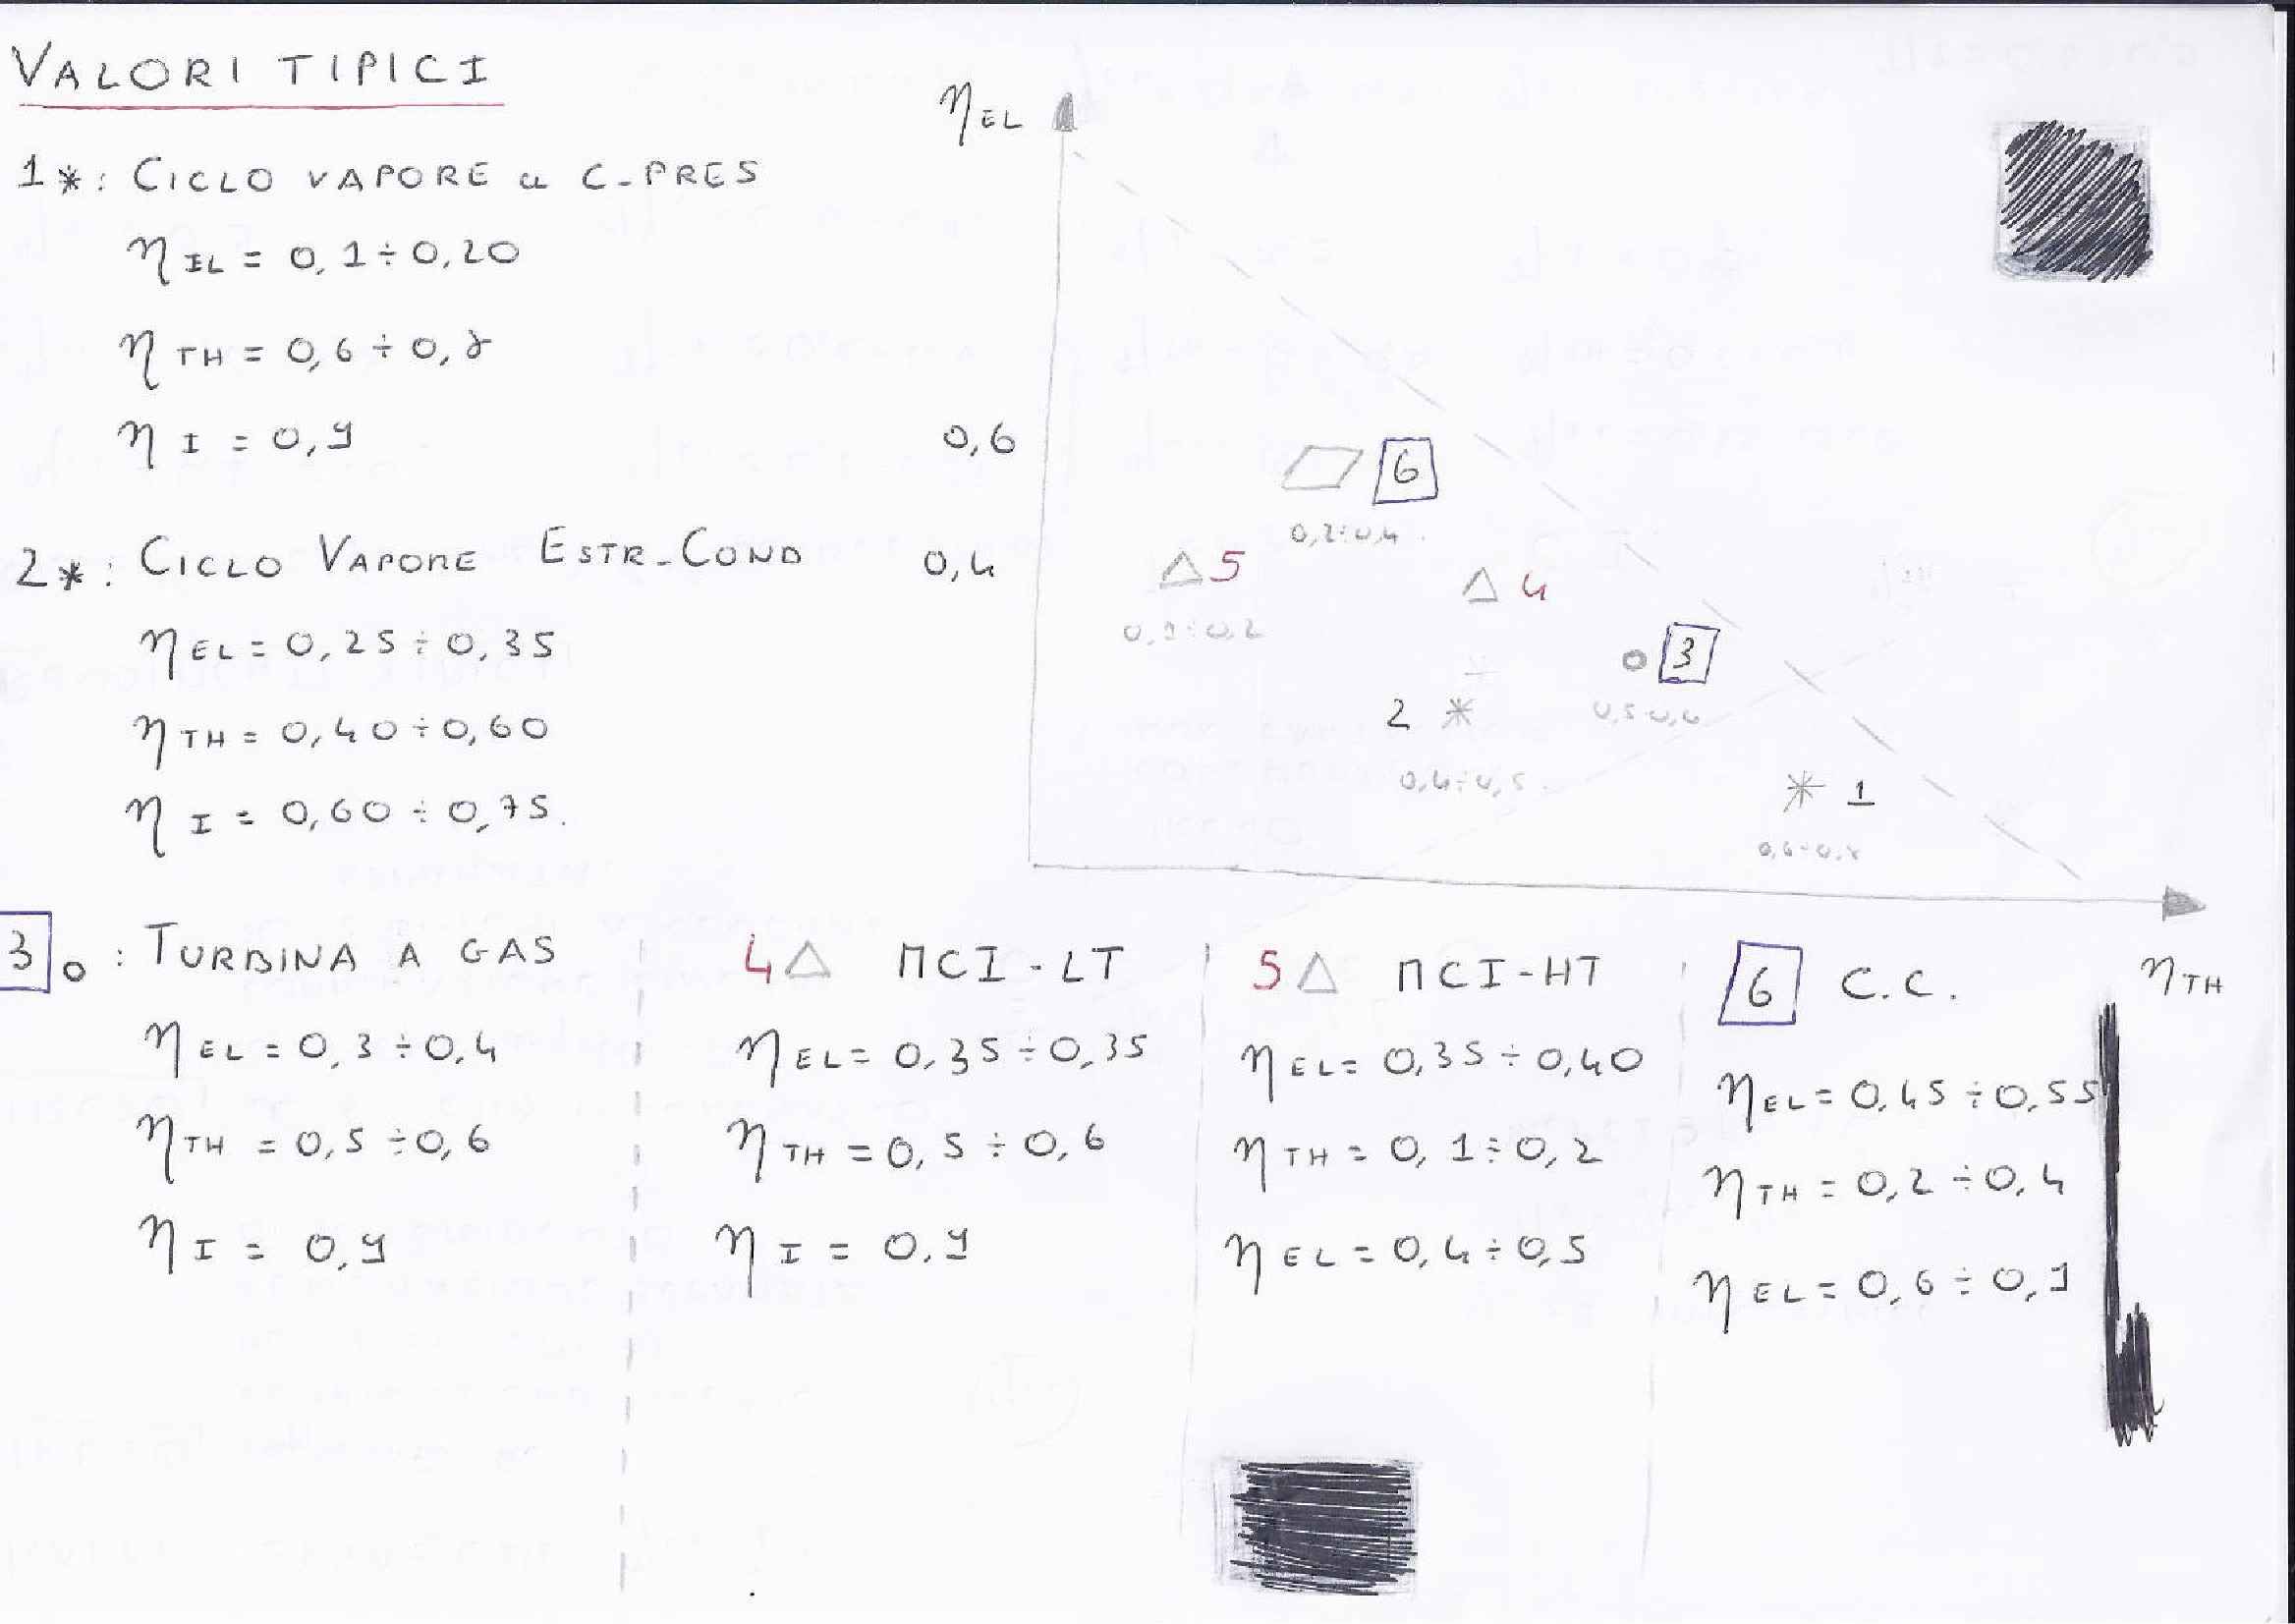 VALORI TIPICI
1*: CICLO VAPORE a C-PRES
η IL = 0,1 ÷ 0,20
η TH = 0,6 ÷ 0,8
η I = 0,9
2*: CICLO VAPORE ESTR-COND
η EL = 0,25 ÷ 0,35
η TH = 0,40 ÷ 0,60
η I = 0,60 ÷ 0,75.
η EL
0,6
0,4
6
0,2÷0,4
△ 5
0,1÷0,2
△ 4
o 3
0,5÷0,6
2 *
0,4÷0,5
* 1
0,6÷0,8
η TH
3 o : TURBINA A GAS
η EL = 0,3 ÷ 0,4
η TH = 0,5 ÷ 0,6
η I = 0,9
4 △ MCI-LT
η EL = 0,35 ÷ 0,35
η TH = 0,5 ÷ 0,6
η I = 0,9
5 △ MCI-HT
η EL = 0,35 ÷ 0,40
η TH = 0,1 ÷ 0,2
η EL = 0,4 ÷ 0,5
6 C.C.
η EL = 0,45 ÷ 0,55
η TH = 0,2 ÷ 0,4
η EL = 0,6 ÷ 0,9